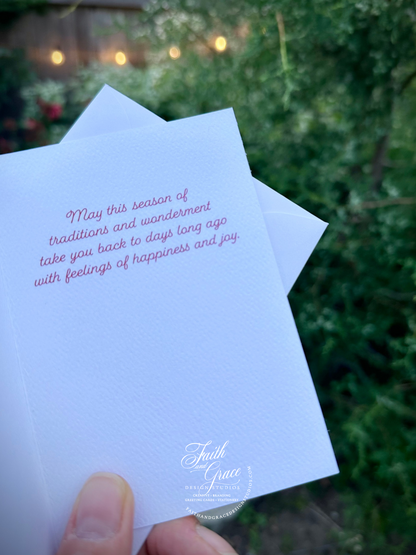 May this season of
traditions and wonderment
take you back to days long ago
with feelings of happiness and joy.
Faith
and
Grace
DESIGN STUDIOS